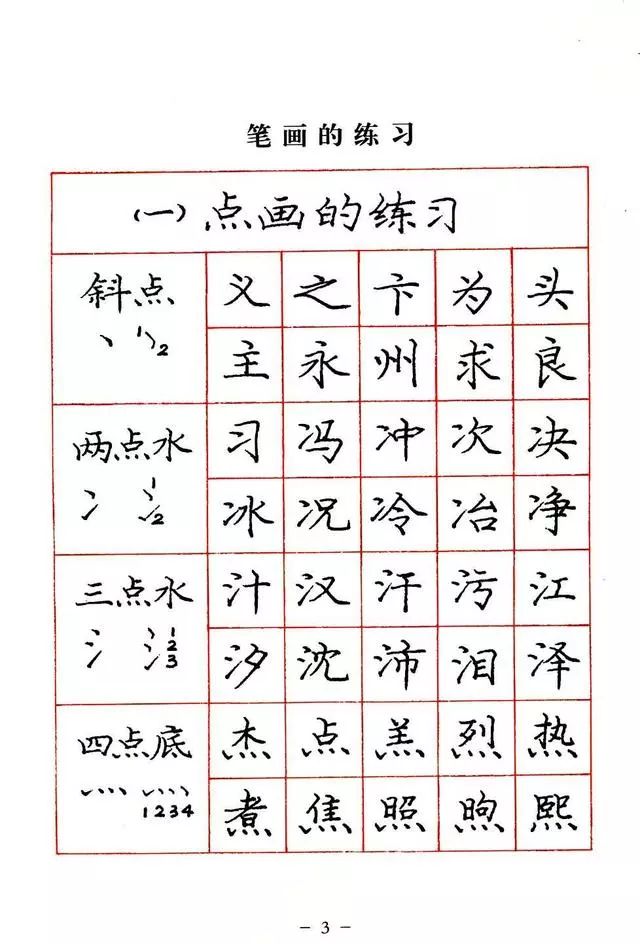 笔画的练习
(一)点画的练习
斜点
丶 1 2
义 之 卞 为 头
主 永 州 求 良
两点水
冫 1 2
习 冯 冲 次 决
冰 况 冷 冶 净
三点水
氵 1 2 3
汁 汉 汗 污 江
汐 沈 沛 泪 泽
四点底
灬 1234
杰 点 羔 烈 热
煮 焦 照 煦 熙
- 3 -